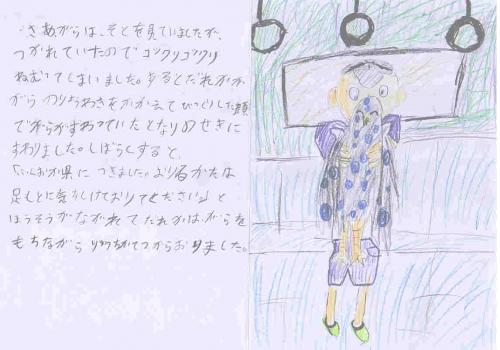 さあがらは、そとを見ていましたが、
つかれていたのでコックリコックリ
ねむってしまいました。するとだれかか
がら のりちわきをかかえてびっくりした顔
でがらがすわっていたとなりのせきに
すわりました。しばらくすると
県につきました。おり るかたは
足もとに気をつけておりてください」と
ほうそうがながれてだれかは、がらを
もちながら おりました。